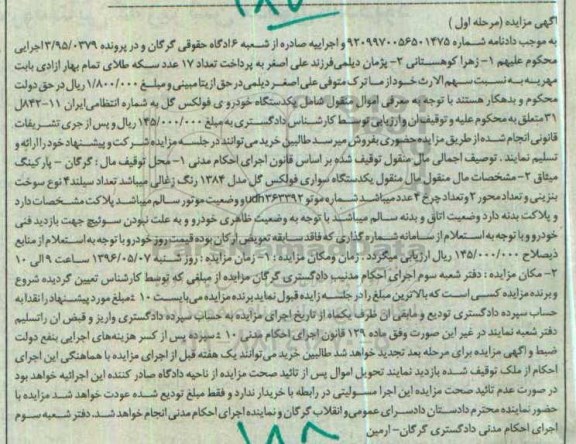 ۱۸۷
آگهی مزایده (مرحله اول)
به موجب دادنامه شماره ۹۲۰۹۹۷۰۰۵۶۵۰۱۴۷۵ و اجراییه صادره از شعبه ۶ دادگاه حقوقی گرگان و در پرونده ۳/۹۵/۰۳۷۹ اجرایی
محکوم علیهم ۱- زهرا کوهستانی ۲- پژمان دیلمی فرزند علی اصغر به پرداخت تعداد ۱۷ عدد سکه طلای تمام بهار آزادی بابت
مهریه به نسبت سهم الارث خود از ماترک متوفی علی اصغر دیلمی در حق ازیتا مبینی و مبلغ ۱/۸۰۰/۰۰۰ ریال در حق دولت
محکوم و بدهکار هستند با توجه به معرفی اموال منقول شامل یکدستگاه خودروی فولکس گل به شماره انتظامی ایران ۱۱-۸۴۲ل
۳۱ متعلق به محکوم علیه و توقیف آن وارزیابی توسط کارشناس دادگستری به مبلغ ۱۴۵/۰۰۰/۰۰۰ ریال و پس از جری تشریفات
قانونی انجام شده از طریق مزایده حضوری بفروش میرسد طالبین خرید می توانند در جلسه مزایده شرکت و پیشنهاد خود را ارائه و
تسلیم نمایند. توصیف اجمالی مال منقول توقیف شده بر اساس قانون اجرای احکام مدنی ۱- محل توقیف مال: گرگان - پارکینگ
میثاق ۲- مشخصات مال منقول مال منقول یکدستگاه سواری فولکس گل مدل ۱۳۸۴ رنگ زغالی میباشد تعداد سیلند۴ نوع سوخت
بنزینی و تعداد محور ۲ و تعداد چرخ ۴ عدد میباشد شماره موتور udh۳۶۳۳۹۲ و وضعیت موتور سالم میباشد پلاکت مشخصات دارد
و پلاکت بدنه دارد وضعیت اتاق و بدنه سالم میباشد با توجه به وضعیت ظاهری خودرو و به علت نبودن سوئیچ جهت بازدید فنی
خودرو و با توجه به استعلام از سامانه شماره گذاری که فاقد سابقه تعویض ارکان بوده قیمت روز خودرو با توجه به استعلام از منابع
ذیصلاح ۱۴۵/۰۰۰/۰۰۰ ریال ارزیابی میگردد. زمان ومکان مزایده: ۱- زمان مزایده: روز شنبه ۱۳۹۶/۰۵/۰۷ ساعت ۹ الی ۱۰
۲- مکان مزایده: دفتر شعبه سوم اجرای احکام مدنیب دادگستری گرگان مزایده از مبلغی که توسط کارشناس تعیین گردیده شروع
و برنده مزایده کسی است که بالاترین مبلغ را در جلسه زایده قبول نماید برنده مزایده می بایست ۱۰٪ مبلغ مورد پیشنهاد را نقدا به
حساب سپرده دادگستری تودیع و مابقی آن ظرف یکماه از تاریخ اجرای مزایده به حساب سپرده دادگستری واریز و قبض آن را تسلیم
دفتر شعبه نمایند در غیر این صورت وفق ماده ۱۲۹ قانون اجرای احکام مدنی ۱۰٪ سپرده پس از کسر هزینه های اجرایی بنفع دولت
ضبط و آگهی مزایده برای مرحله بعد تجدید خواهد شد طالبین خرید می توانند یک هفته قبل از اجرای مزایده با هماهنگی این اجرای
احکام از ملک توقیف شده بازدید نمایند تحویل اموال پس از تائید صحت مزایده از ناحیه دادگاه صادر کننده این اجرائیه خواهد بود
در صورت عدم تائید صحت مزایده این اجرا مسولیتی در رابطه با خریدار ندارد و فقط مبلغ تودیع شده عودت خواهد شد مزایده با
حضور نماینده محترم دادستان دادسرای عمومی و انقلاب گرگان و نماینده اجرای احکام مدنی انجام خواهد شد. دفتر شعبه سوم
اجرای احکام مدنی دادگستری گرگان- ارمین
۱۸۸